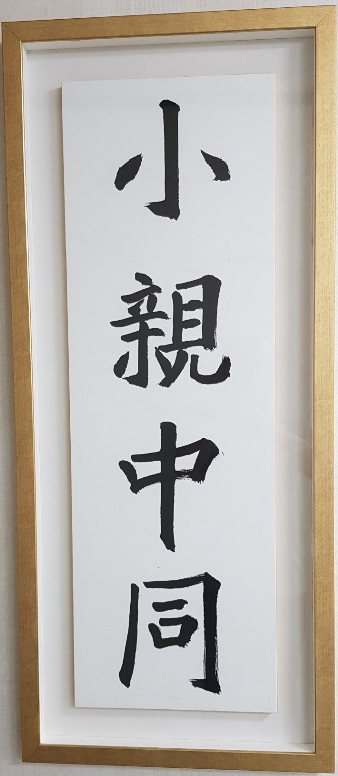 小親中同